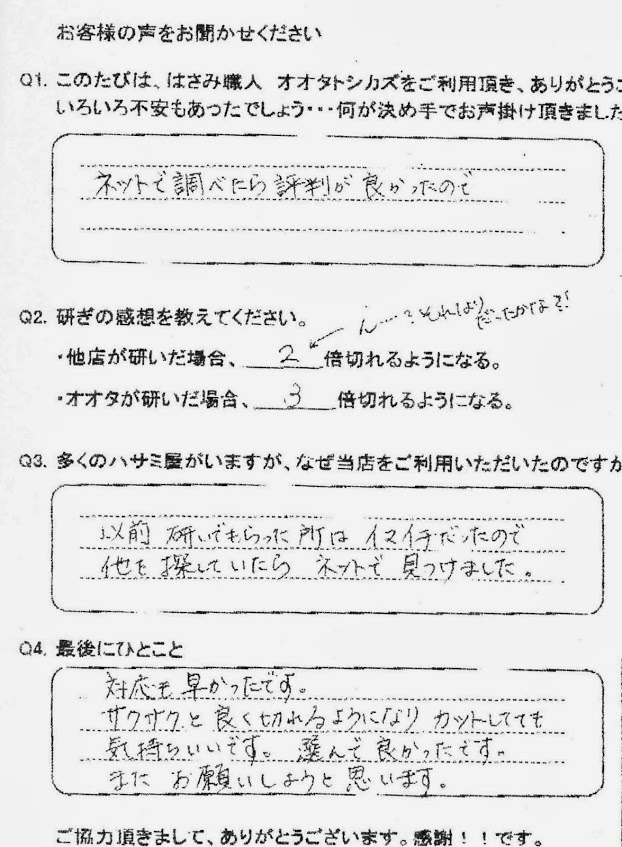 お客様の声をお聞かせください
Q1. このたびは、はさみ職人 オオタトシカズをご利用頂き、ありがとう
いろいろ不安もあったでしょう・・・何が決め手でお声掛け頂きました
ネットで調べたら評判が良かったので
Q2. 研ぎの感想を教えてください。
ん…?そればり
だったかな?!
・他店が研いだ場合、2倍切れるようになる。
・オオタが研いだ場合、3倍切れるようになる。
Q3. 多くのハサミ屋がいますが、なぜ当店をご利用いただいたのですか
以前 研いでもらった所は イマイチだったので
他を探していたら ネットで見つけました。
Q4. 最後にひとこと
対応も早かったです。
サクサクと良く切れるようになり カットしてても
気持ちいいです。選んで良かったです。
また お願いしようと思います。
ご協力頂きまして、ありがとうございます。感謝！！です。